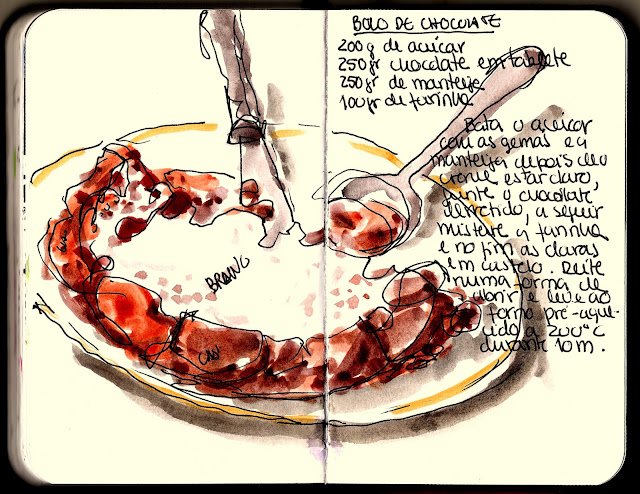 BOLO DE CHOCOLATE
200g de açúcar
250gr chocolate em tablete
250gr de manteiga
100gr de farinha
Bata o açúcar
com as gemas e a
manteiga depois do
creme estar claro,
junte o chocolate
derretido, a seguir
misture a farinha
e no fim as claras
em castelo. Deite
numa forma de
abrir e leve ao
forno pré-aque-
cido a 200°C
durante 10m.
BRANCO